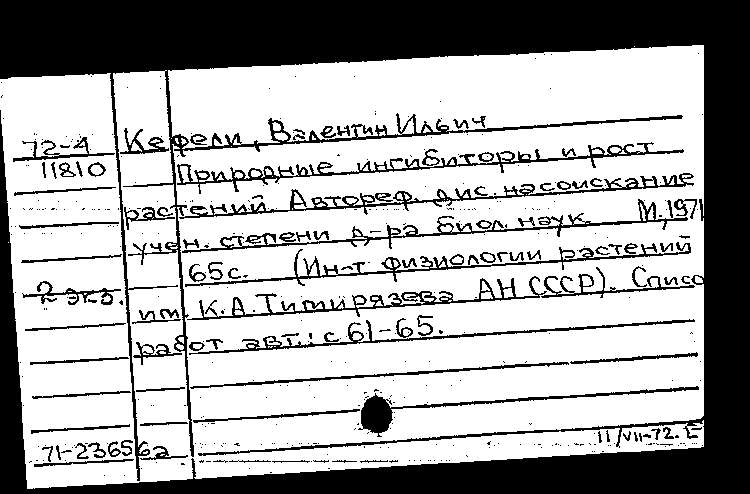 72-4 Кефели, Валентин Ильич
11810 Природные ингибиторы и рост
растений. Автореф. дис. на соискание
учен. степени д-ра биол. наук. М., 1971
65 с. (Ин-т физиологии растений
2 экз. им. К.А. Тимирязева АН СССР). Списо
работ авт.: с 61-65.
71-23656а
11/VII-72.